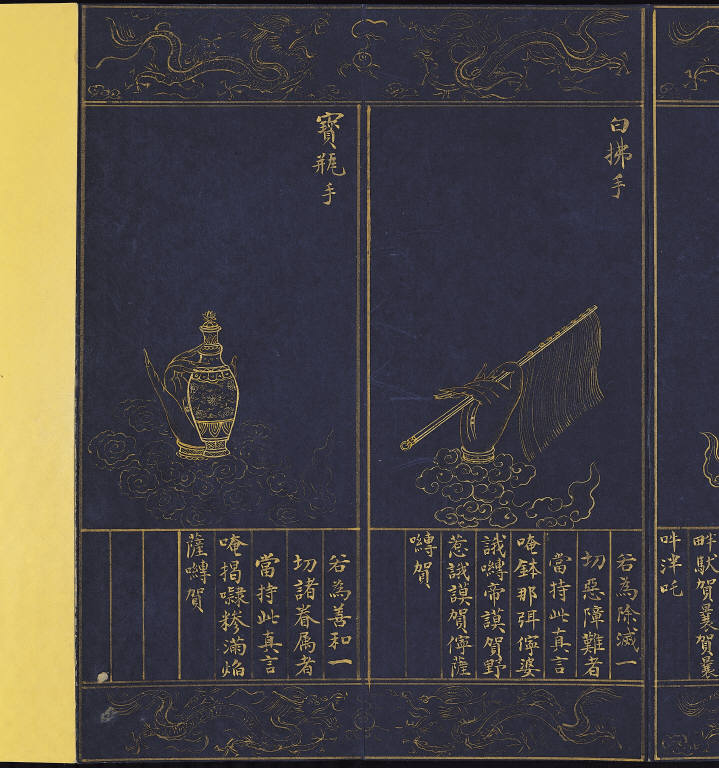 畔馱賀曩賀曩
吽泮吒
白拂手
若為除滅一
切惡障難者
當持此真言
唵鉢那弭儜婆
誐嚩帝謨賀野
惹誐謨賀儜薩
嚩賀
寶瓶手
若為善和一
切諸眷屬者
當持此真言
唵揭㘑糝滿焰
薩嚩賀